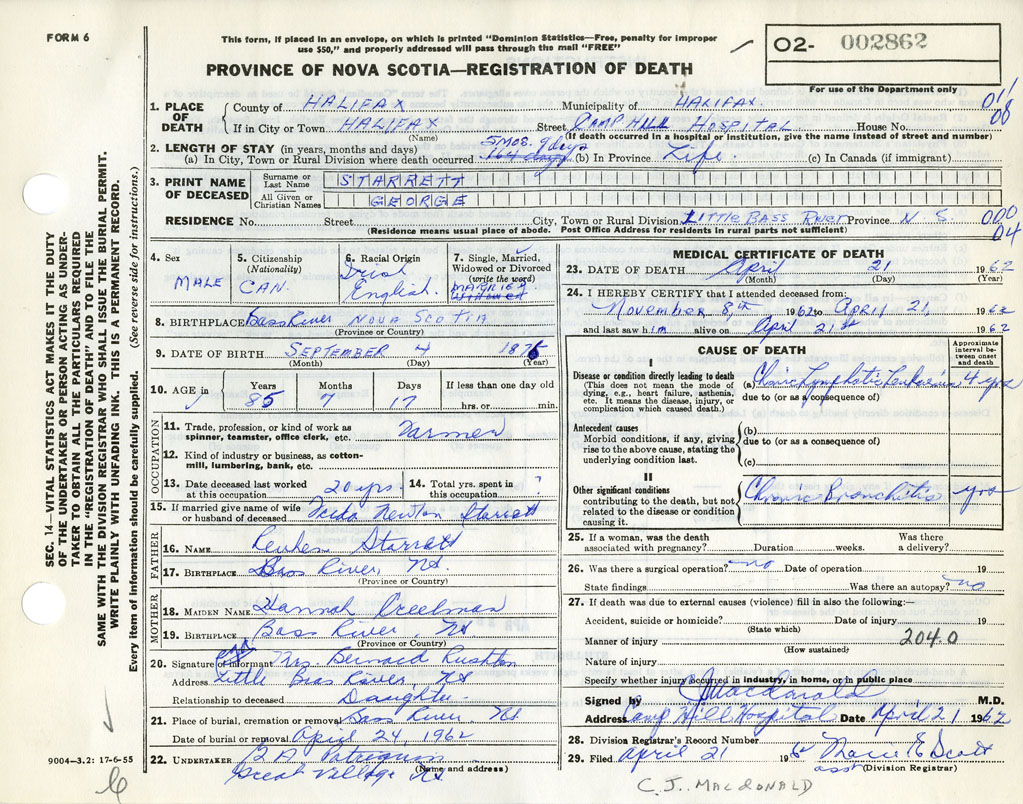 FORM 6
This form, if placed in an envelope, on which is printed "Dominion Statistics—Free, penalty for improper
use $50," and properly addressed will pass through the mail "FREE"
PROVINCE OF NOVA SCOTIA—REGISTRATION OF DEATH
O2- 002862
For use of the Department only
1. PLACE OF DEATH
County of HALIFAX Municipality of HALIFAX.
If in City or Town HALIFAX Street CAMP HILL HOSPITAL House No.
(Name) (If death occurred in a hospital or institution, give the name instead of street and number)
011
08
2. LENGTH OF STAY (in years, months and days) 5 MOS. 9 days
(a) In City, Town or Rural Division where death occurred 164 days (b) In Province Life. (c) In Canada (if immigrant)
3. PRINT NAME OF DECEASED
Surname or Last Name STARRETT
All Given or Christian Names GEORGE
RESIDENCE No. Street City, Town or Rural Division LITTLE BASS RIVER Province N. S.
(Residence means usual place of abode. Post Office Address for residents in rural parts not sufficient)
000
04
4. Sex MALE
5. Citizenship (Nationality) CAN.
6. Racial Origin Irish English.
7. Single, Married, Widowed or Divorced (write the word) MARRIED Widowed
8. BIRTHPLACE Bass River NOVA SCOTIA
(Province or Country)
9. DATE OF BIRTH SEPTEMBER 4 1876
(Month) (Day) (Year)
10. AGE in Years 85 Months 7 Days 17 If less than one day old hrs. or min.
OCCUPATION
11. Trade, profession, or kind of work as spinner, teamster, office clerk, etc. Farmer
12. Kind of industry or business, as cotton-mill, lumbering, bank, etc.
13. Date deceased last worked at this occupation 20 yrs. 14. Total yrs. spent in this occupation ?
15. If married give name of wife or husband of deceased Newton Starratt
FATHER
16. NAME Reuben Starratt
17. BIRTHPLACE Bass River, NS.
(Province or Country)
MOTHER
18. MAIDEN NAME Hannah Creelman
19. BIRTHPLACE Bass River, NS
(Province or Country)
20. Signature of informant Mrs. Bernard Rushton
Address Little Bass River, NS
Relationship to deceased Daughter
21. Place of burial, cremation or removal Bass River, NS
Date of burial or removal April 24, 1962
22. UNDERTAKER
Great Village NS
(Name and address)
MEDICAL CERTIFICATE OF DEATH
23. DATE OF DEATH April 21 1962
(Month) (Day) (Year)
24. I HEREBY CERTIFY that I attended deceased from:
November 8, th 1961 to April 21, 1962
and last saw him alive on April 21st 1962
CAUSE OF DEATH
Approximate interval between onset and death
I
Disease or condition directly leading to death
(This does not mean the mode of dying, e.g., heart failure, asthenia, etc. It means the disease, injury, or complication which caused death.)
(a) Chronic Lymphatic Leukaemia 4 yrs
due to (or as a consequence of)
Antecedent causes
Morbid conditions, if any, giving rise to the above cause, stating the underlying condition last.
(b)
due to (or as a consequence of)
(c)
II
Other significant conditions
contributing to the death, but not related to the disease or condition causing it.
Chronic Bronchitis yrs
25. If a woman, was the death associated with pregnancy? Duration weeks. Was there a delivery?
26. Was there a surgical operation? no Date of operation 19
State findings Was there an autopsy? no
27. If death was due to external causes (violence) fill in also the following:—
Accident, suicide or homicide? Date of injury 19
(State which)
Manner of injury 204.0
(How sustained)
Nature of injury
Specify whether injury occurred in industry, in home, or in public place
Signed by CJ Macdonald M.D.
Address Camp Hill Hospital Date April 21 1962
28. Division Registrar's Record Number
29. Filed April 21 19 62 Marie E Scott
asst (Division Registrar)
C. J. MACDONALD
SEC. 14—VITAL STATISTICS ACT MAKES IT THE DUTY
OF THE UNDERTAKER OR PERSON ACTING AS UNDER-
TAKER TO OBTAIN ALL THE PARTICULARS REQUIRED
IN THE "REGISTRATION OF DEATH" AND TO FILE THE
SAME WITH THE DIVISION REGISTRAR WHO SHALL ISSUE THE BURIAL PERMIT.
WRITE PLAINLY WITH UNFADING INK. THIS IS A PERMANENT RECORD.
Every item of information should be carefully supplied. (See reverse side for instructions.)
9004—3.2: 17-6-55